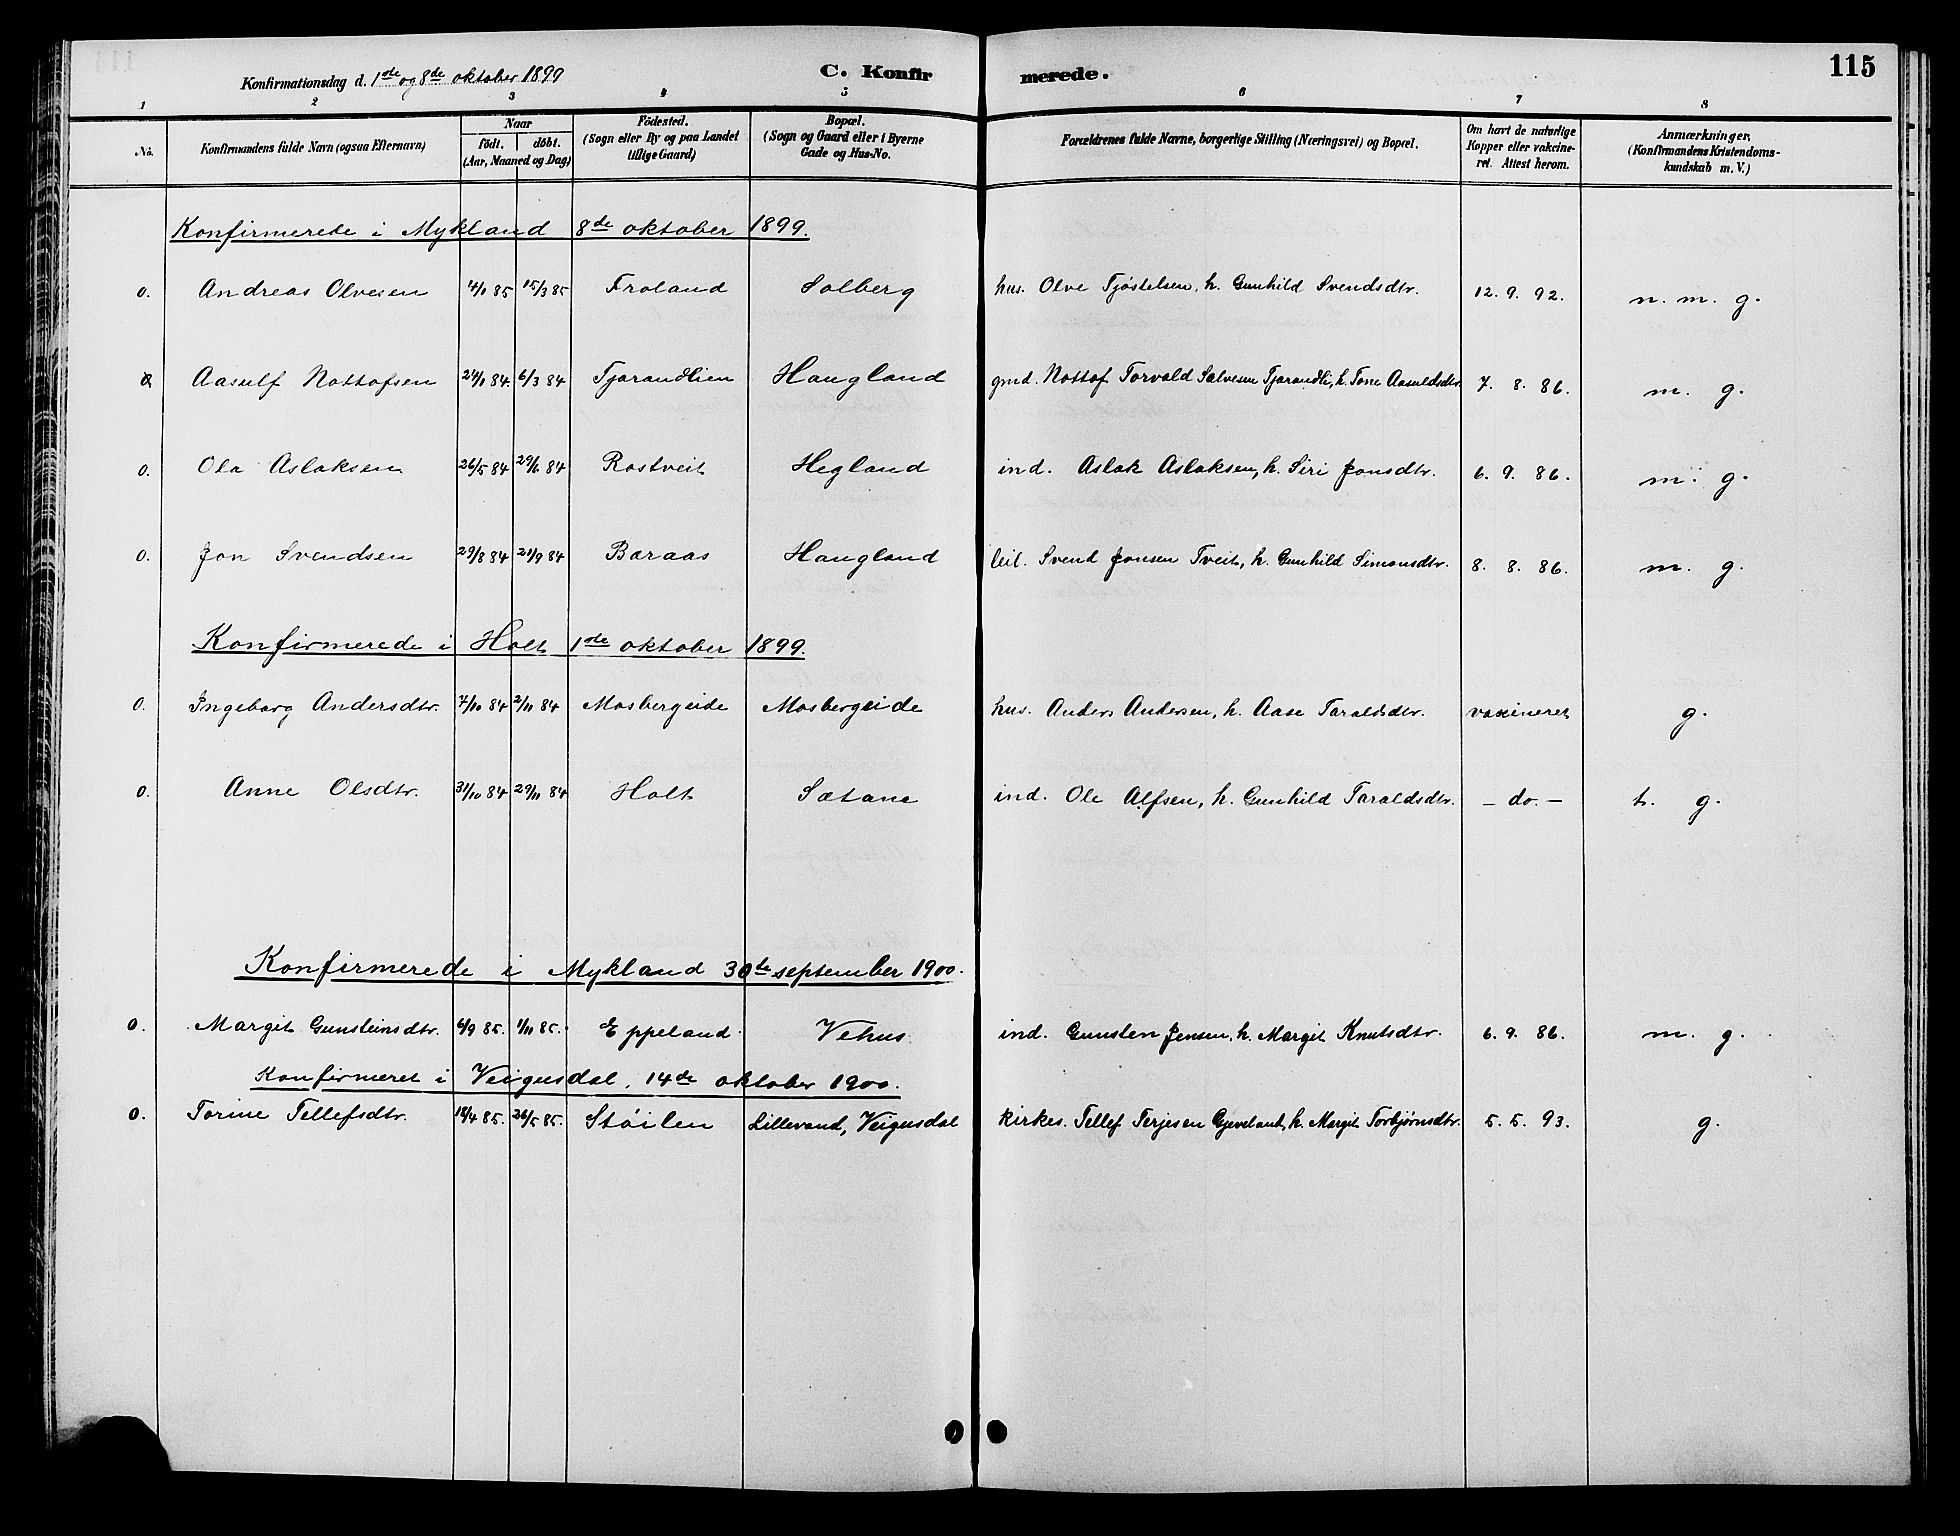 Konfirmationsdag d. 1ste og 8de oktober 1899 C. Konfirmerede. 115
1 2 3 4 5 6 7 8
No. Konfirmandens fulde Navn (ogsaa Efternavn) Naar födt. döbt. (Aar, Maaned og Dag) Födested. (Sogn eller By og paa Landet tillige Gaard) Bopæl. (Sogn og Gaard eller i Byerne Gade og Hus-No. Forældrenes fulde Navne, borgerlige Stilling (Næringsvei) og Bopæl. Om havt de naturlige Kopper eller vakcineret. Attest herom. Anmærkninger. (Konfirmandens Kristendomskundskab m. V.)
Konfirmerede i Mykland 8de oktober 1899.
0. Andreas Olvesen 4/1 85 15/3 85 Froland Solberg hus. Olve Tjöstelsen, h. Gunhild Svendsdtr. 12. 9. 92. n. m. g.
Aasulf Nottofsen 24/1 84. 6/3 84 Tjorandlien Haugland gmd. Nottof Torvald Salvesen Tjorandli, h. Tone Aasuldsdtr. 7. 8. 86. m. g.
0. Ola Aslaksen 26/5 84 29/6 84 Rostveit Hegland ind. Aslak Aslaksen, h. Siri Jonsdtr. 6. 9. 86. m. g.
0. Jon Svendsen 29/8 84 21/9 84 Baraas Haugland leil. Svend Jonsen Tveit, h. Gunhild Simonsdtr. 8. 8. 86. m. g.
Konfirmerede i Holt 1ste oktober 1899.
0. Ingeborg Andersdtr. 7/10 84 2/11 84 Mosbergeide Mosbergeide hus. Anders Andersen, h. Aase Taraldsdtr. vaxineret g.
0. Anne Olsdtr. 31/10 84 29/11 84 Holt Sætane ind. Ole Alfsen, h. Gunhild Taraldsdtr. – do. – t. g.
Konfirmerede i Mykland 30te september 1900.
0. Margit Gunsteinsdtr. 6/9 85. 1/11 85. Eppeland Vehus. ind. Gunsten Jensen, h. Margit Knutsdtr. 6. 9. 86. m. g.
Konfirmeret i Veigusdal, 14de oktober 1900.
0. Torine Tellefsdtr. 18/4 85. 26/5 85. Stöilen Lillevand, Veigusdal kirkes. Tellef Terjesen Gjeveland, h. Margit Torbjørnsdtr. 5. 5. 93. g.